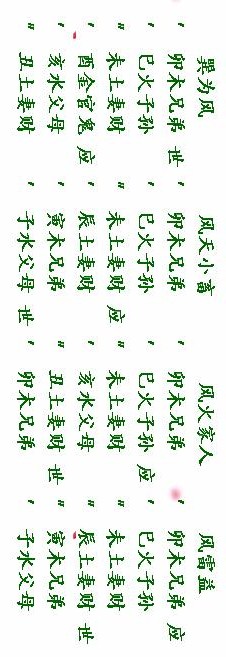 巽为风
' 卯木兄弟 世
' 巳火子孙
" 未土妻财
' 酉金官鬼 应
' 亥水父母
" 丑土妻财
风天小畜
' 卯木兄弟
' 巳火子孙
" 未土妻财 应
' 辰土妻财
' 寅木兄弟
' 子水父母 世
风火家人
' 卯木兄弟
' 巳火子孙 应
" 未土妻财
' 亥水父母
" 丑土妻财 世
' 卯木兄弟
风雷益
' 卯木兄弟 应
' 巳火子孙
" 未土妻财
" 辰土妻财 世
" 寅木兄弟
' 子水父母